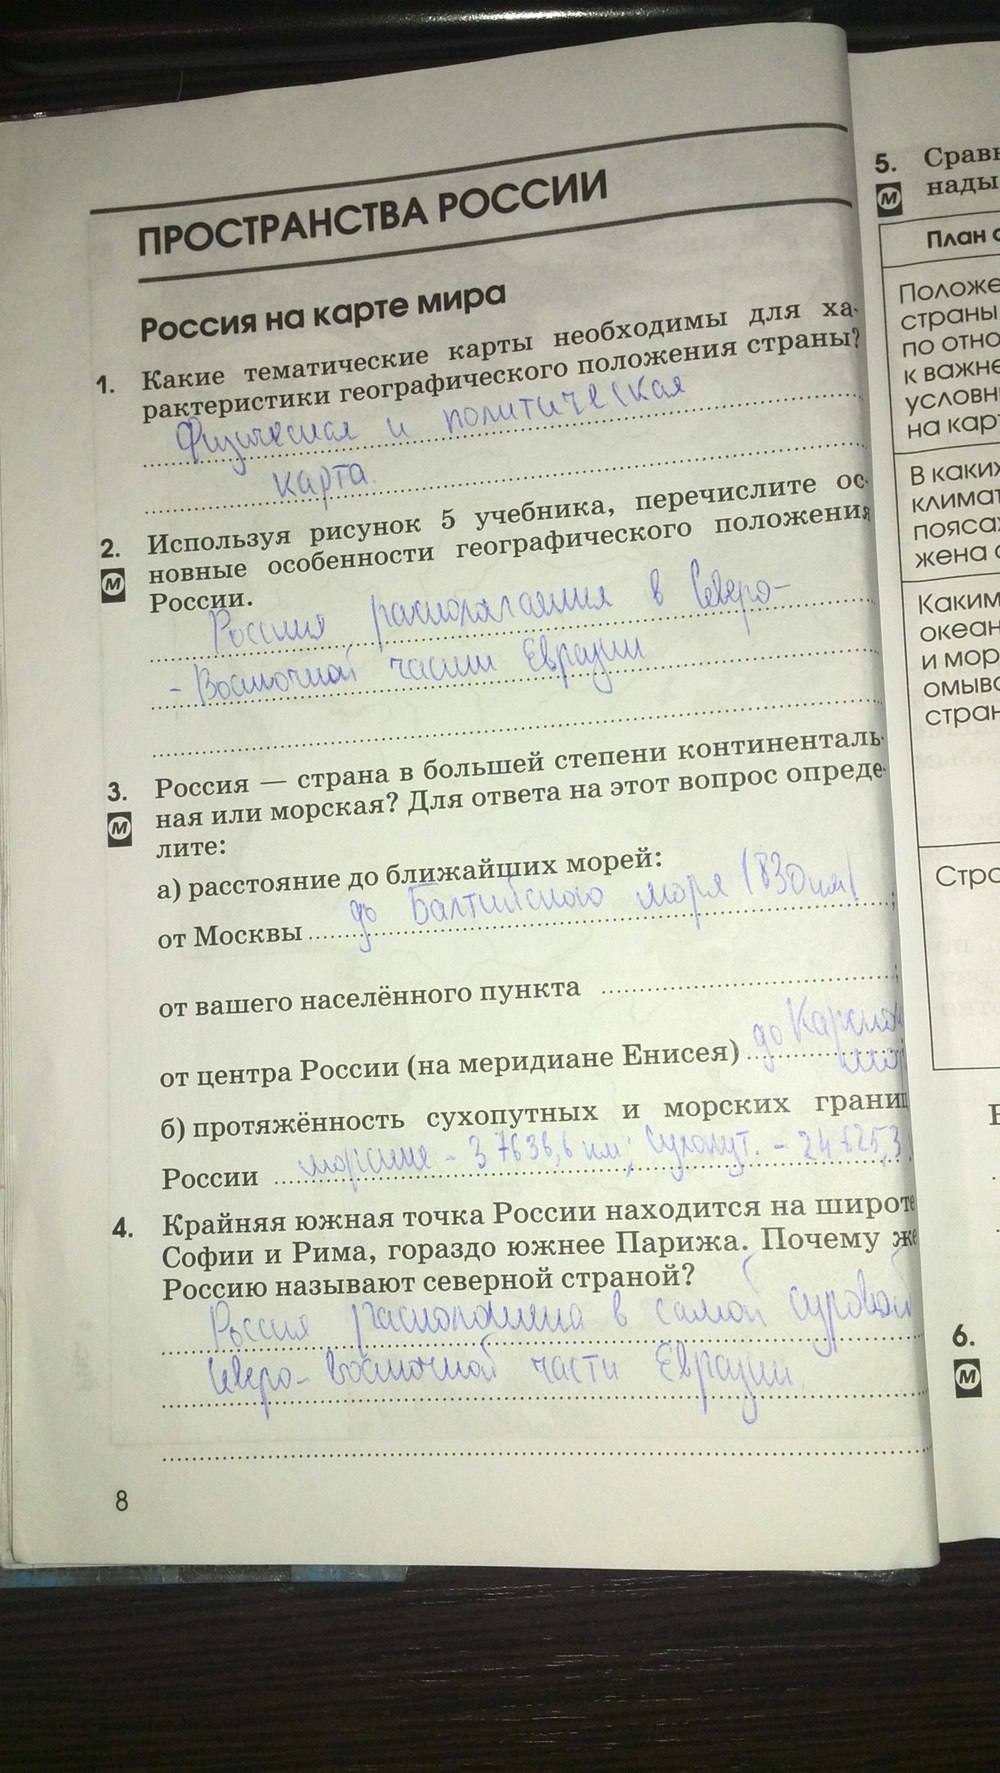 ПРОСТРАНСТВА РОССИИ
Россия на карте мира
1. Какие тематические карты необходимы для ха-
рактеристики географического положения страны?
Физическая и политическая
карта.
2. Используя рисунок 5 учебника, перечислите ос-
М новные особенности географического положения
России.
Россия располагается в Северо-
-Восточной части Евразии
3. Россия — страна в большей степени континенталь-
М ная или морская? Для ответа на этот вопрос опреде-
лите:
а) расстояние до ближайших морей:
от Москвы до Балтийского моря (830 км) ;
от вашего населённого пункта ;
от центра России (на меридиане Енисея) до Карского
б) протяжённость сухопутных и морских границ
России морские - 37636,6 км; Сухопут. -
4. Крайняя южная точка России находится на широте
Софии и Рима, гораздо южнее Парижа. Почему же
Россию называют северной страной?
Россия расположена в самой суровой
Северо-восточной части Евразии.
8
5. Сравн
М нады
План с
Положе
страны
по отно
к важне
условн
на карт
В каких
климат
поясах
жена с
Каким
океан
и мор
омыва
стран
Стра
6.
М